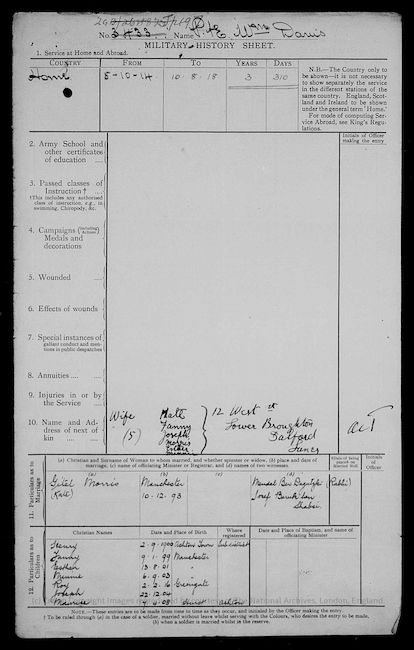 No. Name Pte Wm Davis
MILITARY HISTORY SHEET.
1. Service at Home and Abroad.
COUNTRY FROM TO YEARS DAYS
Home 5-10-14 10-8-18 3 310
N.B.—The Country only to be shown—it is not necessary to show separately the service in the different stations of the same country. England, Scotland and Ireland to be shown under the general term 'Home.'
For mode of computing Service Abroad, see King's Regulations.
Initials of Officer making the entry
2. Army School and other certificates of education
3. Passed classes of Instruction †
†This includes any authorised class of instruction, e.g., in swimming, Chiropody, &c.
4. Campaigns (including Actions) Medals and decorations
5. Wounded
6. Effects of wounds
7. Special instances of gallant conduct and mentions in public despatches
8. Annuities
9. Injuries in or by the Service
10. Name and Address of next of kin
Wife Kate
(5) Fanny
Joseph
Morris
12 West St
Lower Broughton
Salford
Lancs
11. Particulars as to Marriage
(a) Christian and Surname of Woman to whom married, and whether spinster or widow, (b) place and date of marriage, (c) name of officiating Minister or Registrar, and (d) names of two witnesses.
Initials of Officer
(a) (b) (c) (d)
Gitel Morris Manchester
(Kate) 10.12.93
(Rabbi)
12. Particulars as to Children
Christian Names Date and Place of Birth Where registered Date and Place of Baptism, and name of officiating Minister
Henry 2.9.1900
Fanny 9.1.99 Manchester
Esther 13.8.01 "
Minnie 6.9.03
Roy 2.2.16
Joseph 22.12.04
NOTE.—These entries are to be made from time to time as they occur, and initialed by the Officer making them.
† To be ruled through (a) in the case of a soldier, married without leave whilst serving with the Colours, who desires the entry to be made.
(b) when a soldier is married whilst in the reserve.